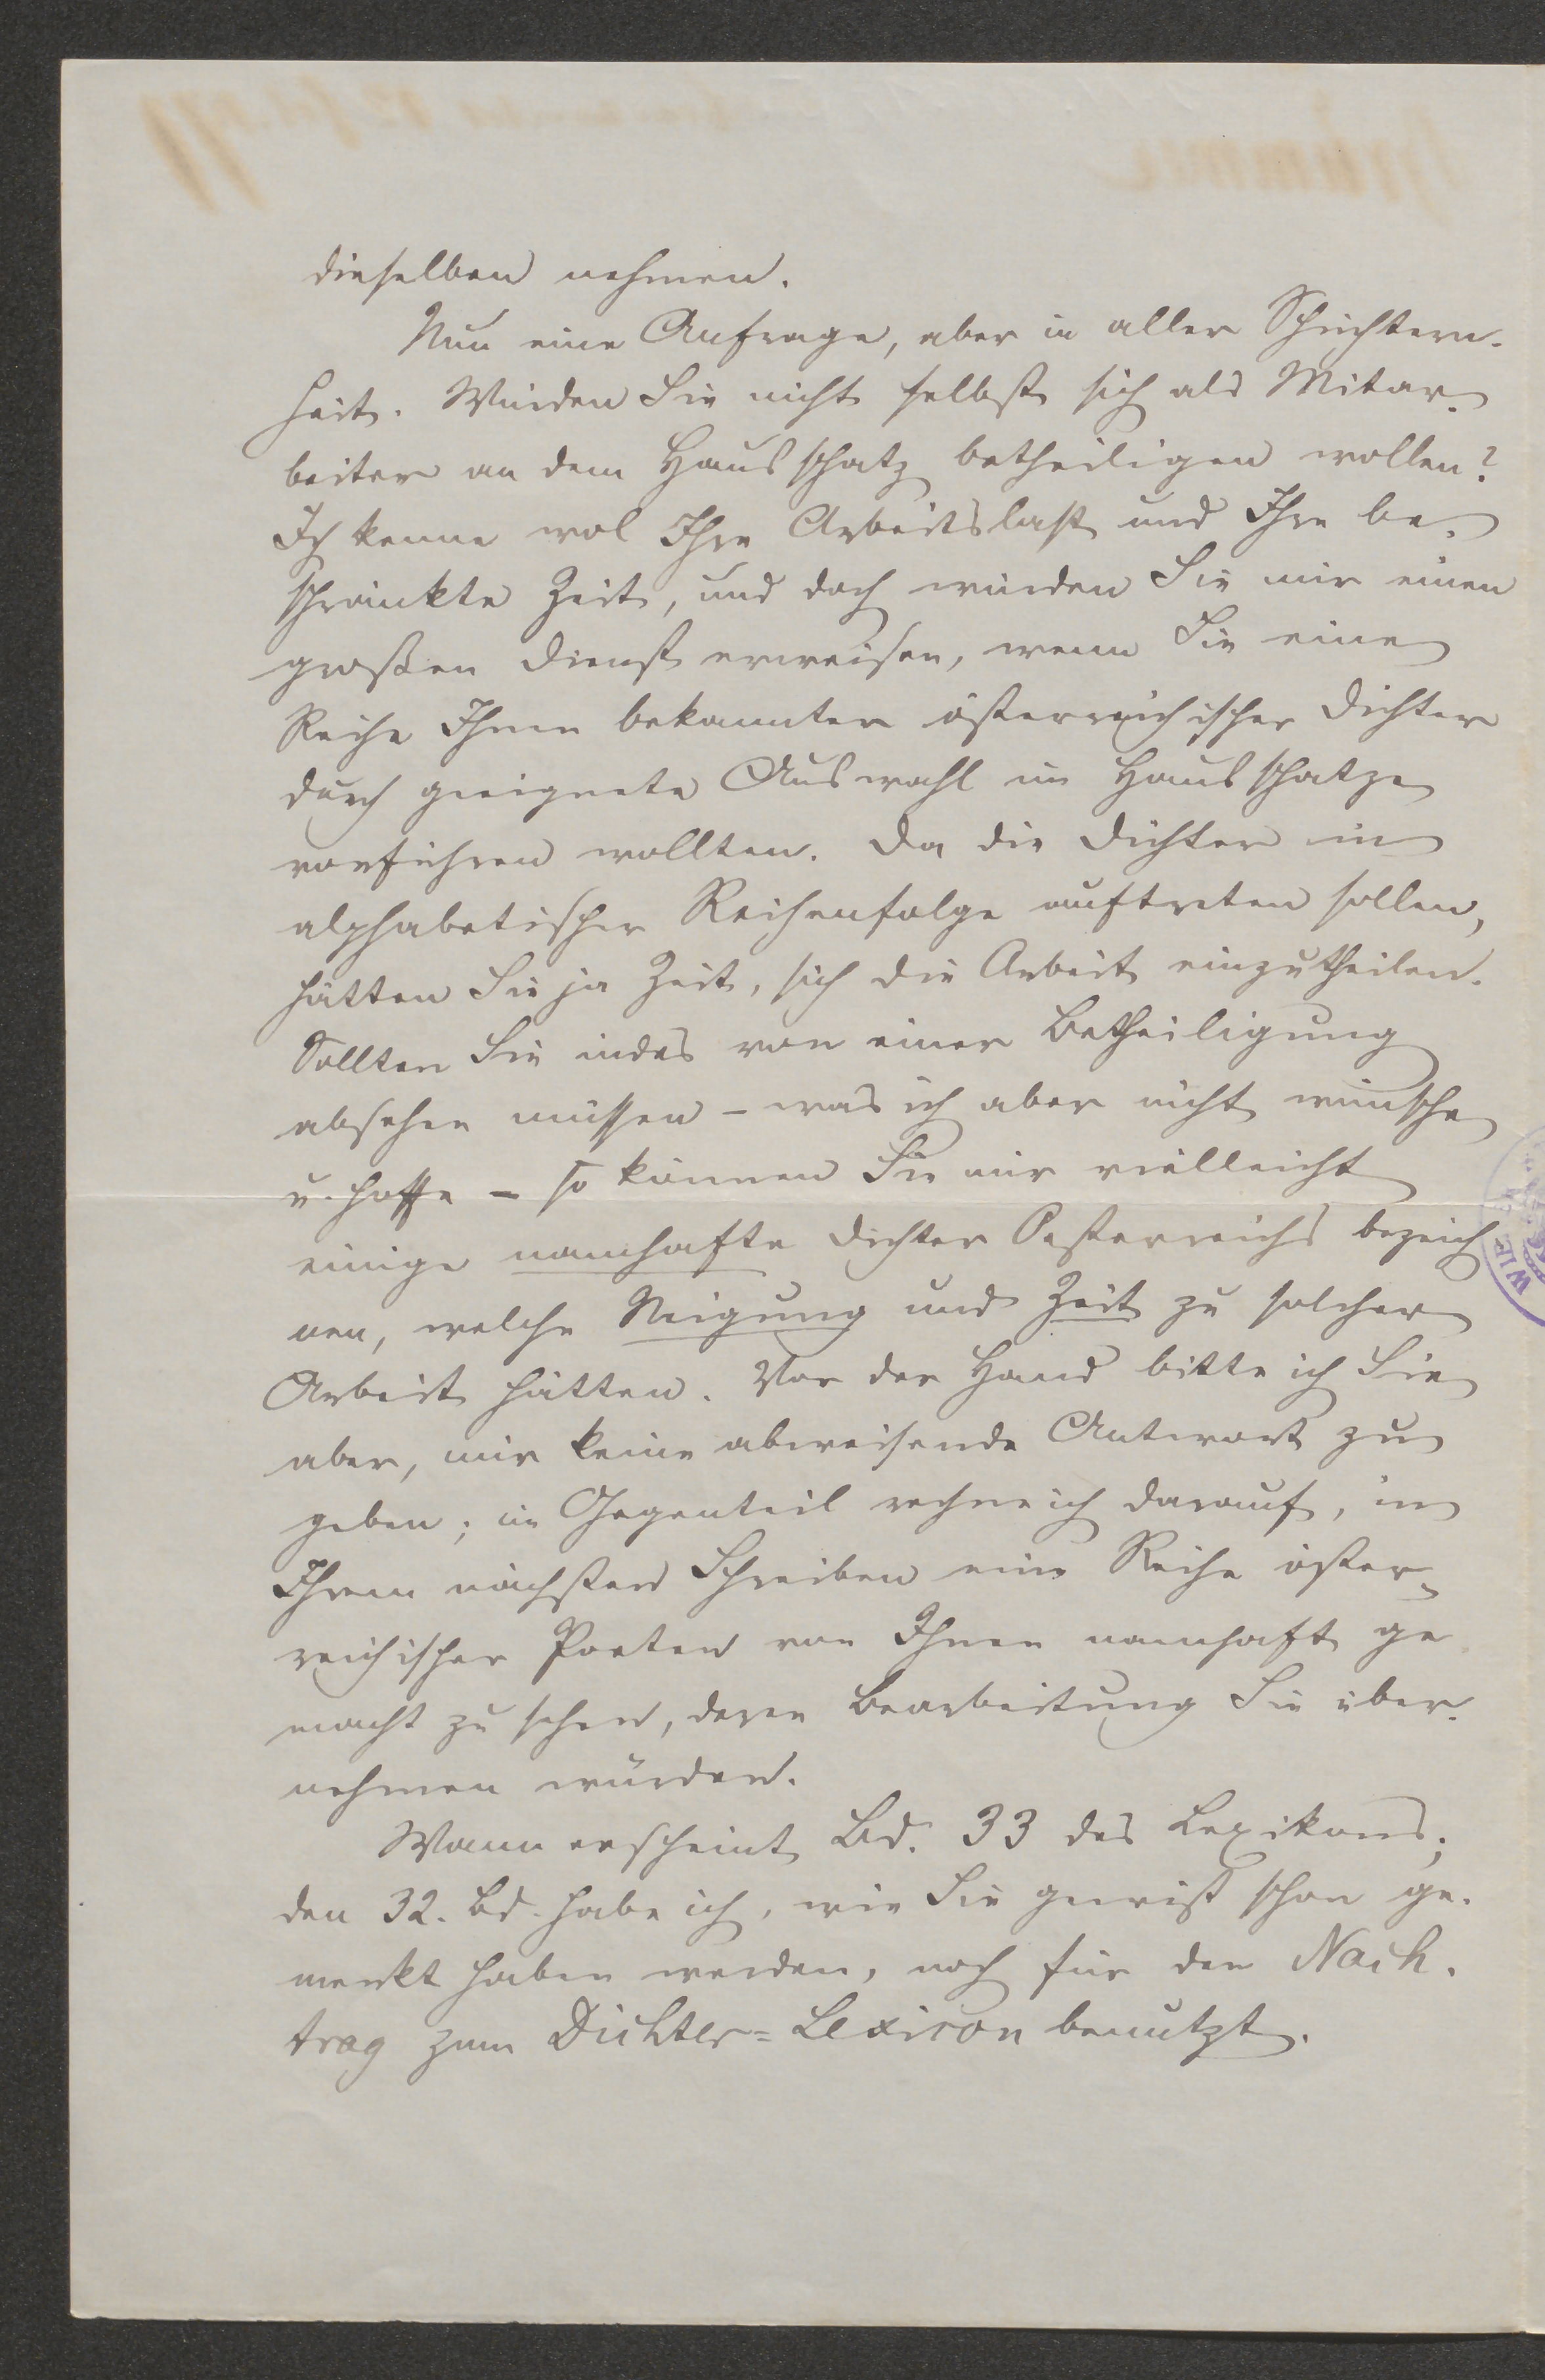 dieselben nehmen.
Nun eine Anfrage, aber in aller Schüchtern-
heit. Würden Sie nicht selbst sich als Mitar-
beiter an dem Hausschatz betheiligen wollen?
Ich kenne wol Ihre Arbeitslast und Ihre be-
schränkte Zeit, und doch würden Sie mir einen
großen Dienst erweisen, wenn Sie eine
Reihe Ihnen bekannter österreichischer Dichter
durch geeignete Auswahl im Hausschatze
vorführen wollten. Da die Dichter in
alphabetischer Reihenfolge auftreten sollen,
hätten Sie ja Zeit, sich die Arbeit einzutheilen.
Sollten Sie indes von einer Betheiligung
absehen müssen – was ich aber nicht wünsche
u. hoffe – so können Sie mir vielleicht
einige namhafte Dichter Oesterreichs bezeich-
nen, welche Neigung und Zeit zu solcher
Arbeit hätten. Vor der Hand bitte ich Sie
aber, mir keine abweisende Antwort zu
geben; im Gegenteil rechne ich darauf, in
Ihrem nächsten Schreiben eine Reihe öster-
reichischer Poeten von Ihnen namhaft ge
macht zu sehen, deren Bearbeitung Sie über-
nehmen würden.
Wann erscheint Bd. 33 des Lexikons;
den 32. Bd. habe ich, wie Sie gewiß schon ge-
merkt haben werden, noch für den Nach-
trag zum Dichter=Lexicon benutzt.
WIEN